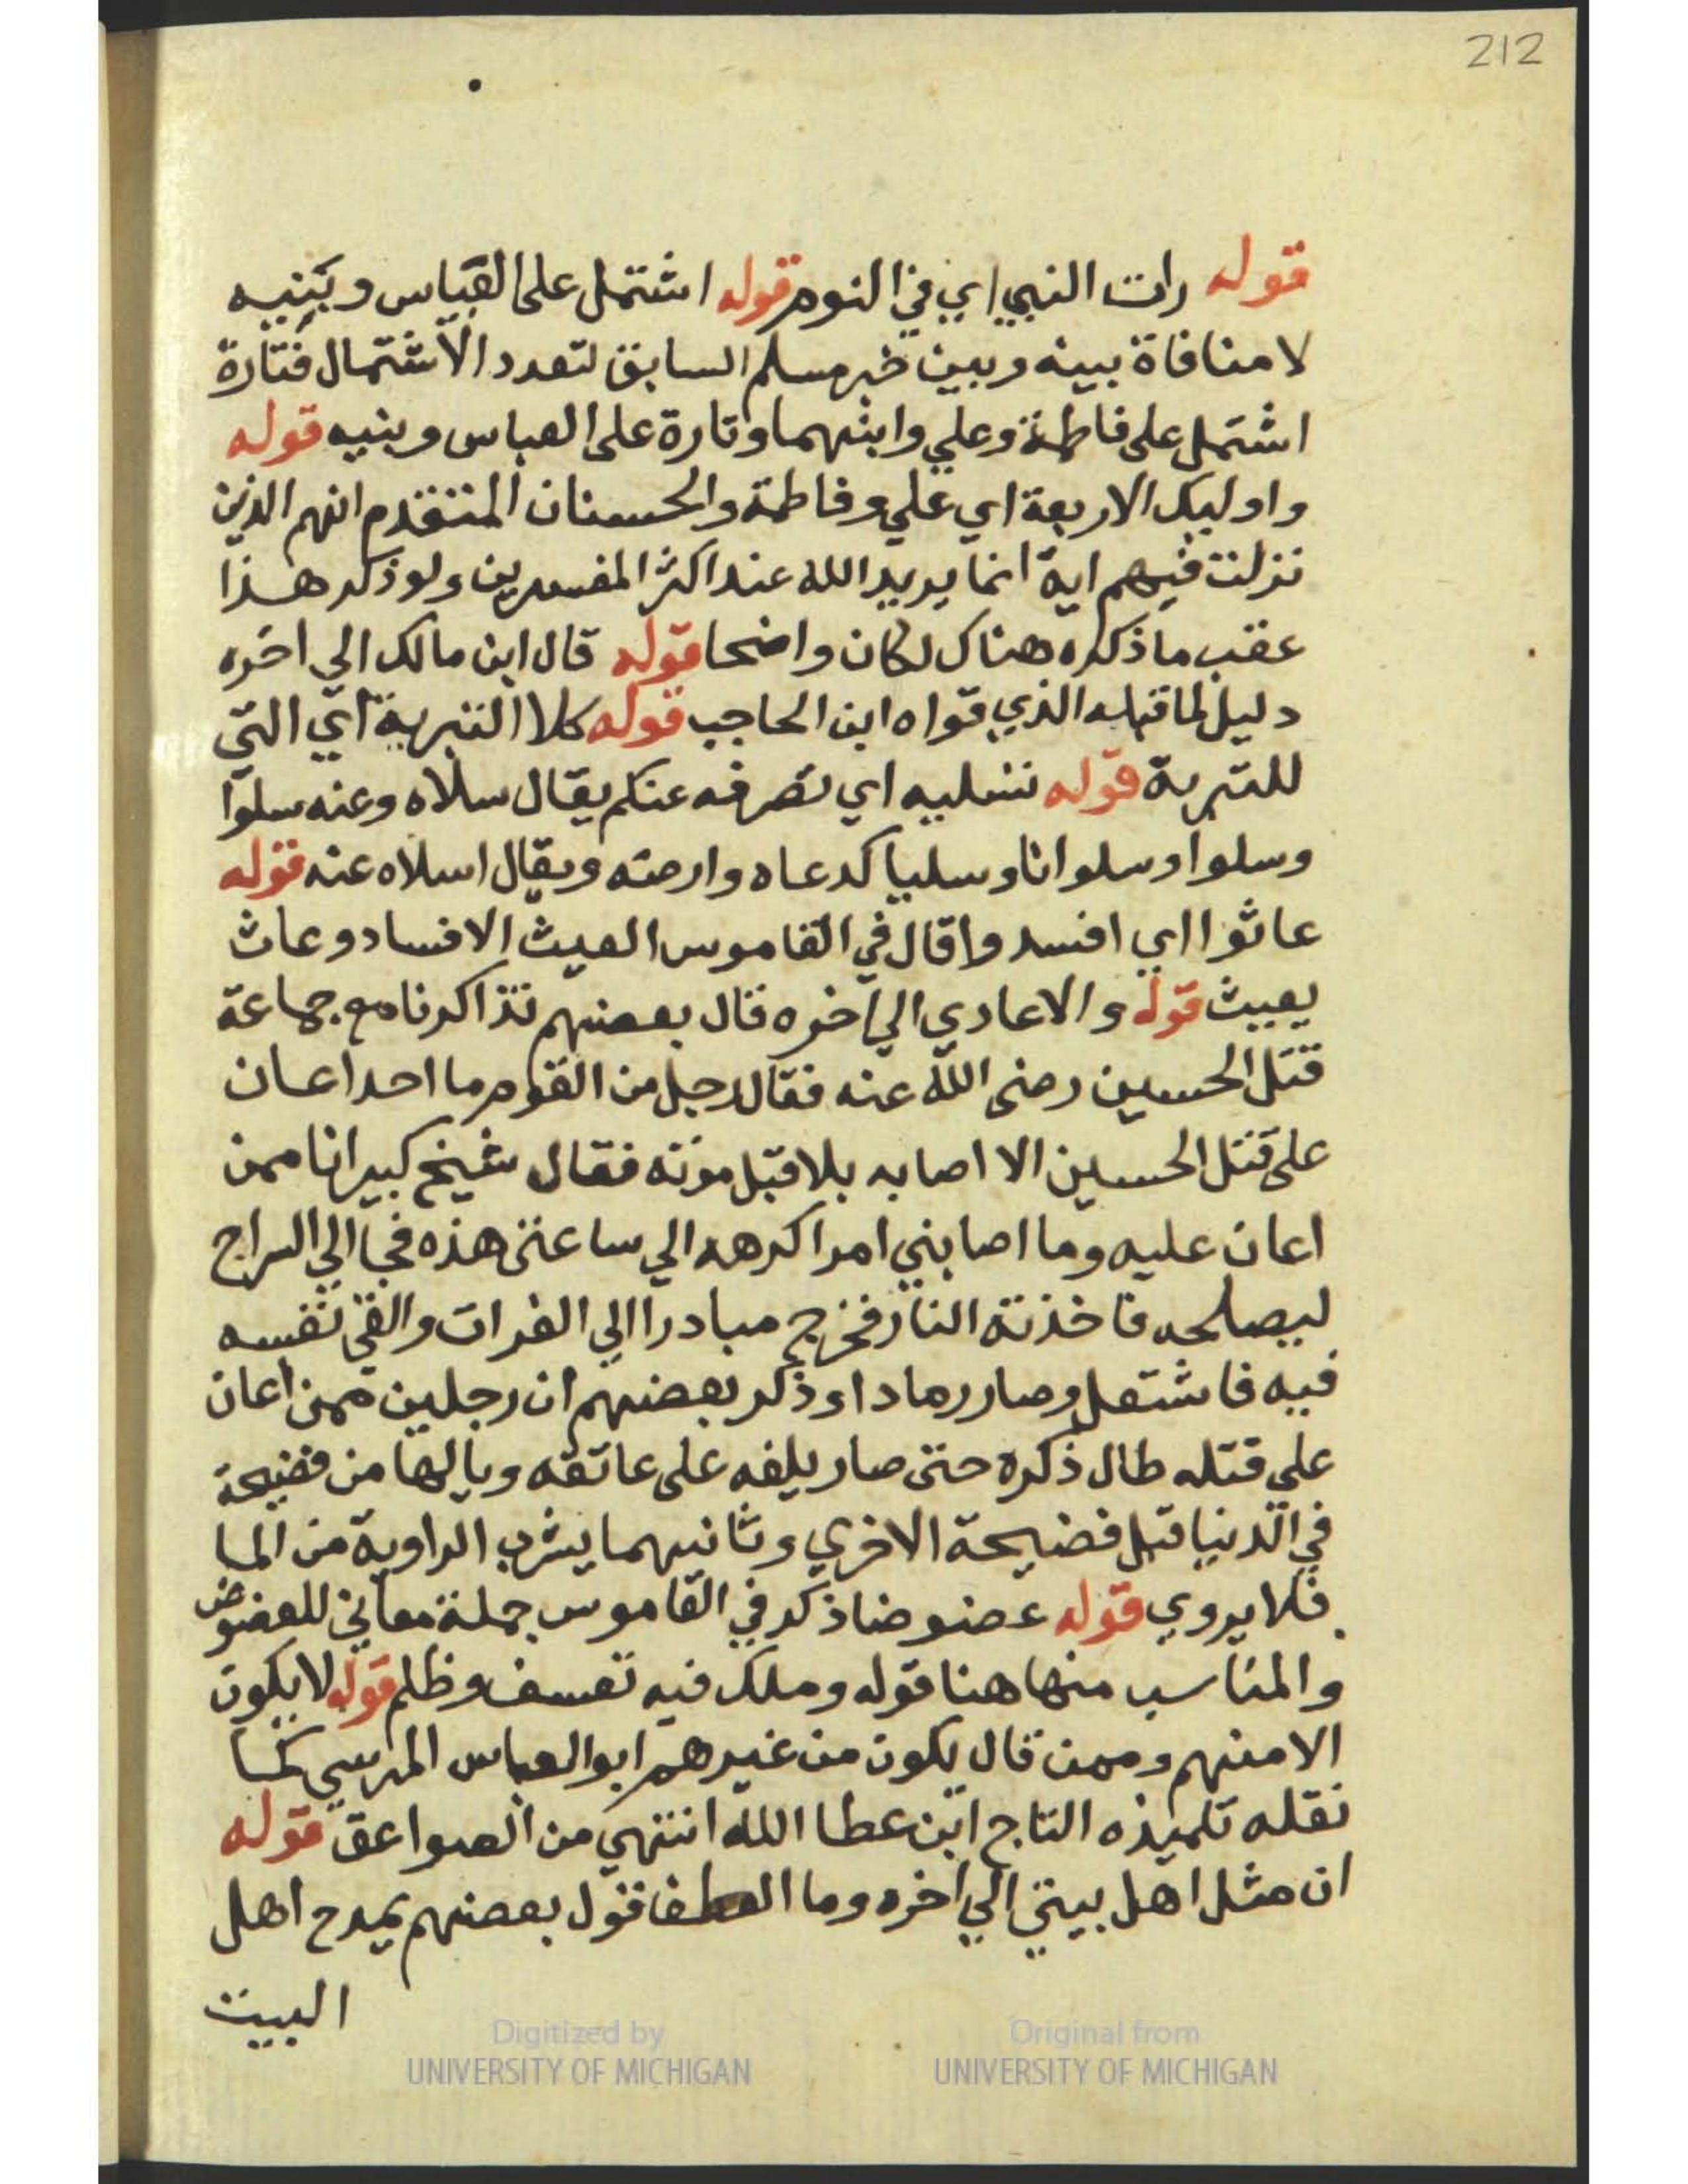 212
قوله رات النبي اي في النوم قوله اشتمل على العباس وبنيه
لا منافاة بينه وبين خبر مسلم السابق لتعدد الاشتمال فتارة
اشتمل على فاطمة وعلي وابنيهما وتارة على العباس وبنيه قوله
واوليك الاربعة اي علي وفاطمة والحسنان المتقدم انهم الذين
نزلت فيهم اية انما يريد الله عند اكثر المفسرين ولو ذكر هذا
عقب ما ذكره هناك لكان واضحا قوله قال ابن مالك الي اخره
دليل لما قبله الذي قواه ابن الحاجب قوله كلا التبرية اي التي
للتبرية قوله نسليه اي نصرفه عنكم يقال سلاه وعنه سلوا
وسلوا وسلوانا وسليا كدعاه وارضه ويقال اسلاه عنه قوله
عاثوا اي افسدوا قال في القاموس العيث الافساد وعاث
يعيث قوله والاعادي الي اخره قال بعضهم تذاكرنا مع جماعة
قتل الحسين رضى الله عنه فقال رجل من القوم ما احد اعان
على قتل الحسين الا اصابه بلا قبل موته فقال شيخ كبير انا ممن
اعان عليه وما اصابني امر اكرهه الي ساعتى هذه فجا الي السراج
ليصلحه فاخذته النار فخرج مبادرا الي الفرات والقى نفسه
فيه فاشتعل وصار رمادا وذكر بعضهم ان رجلين ممن اعان
على قتله طال ذكره حتى صار يلفه على عاتقه ويالها من فضيحة
في الدنيا قبل فضيحة الاخري وثانيهما يشرب الراوية من الما
فلا يروي قوله عضوضا ذكر في القاموس جملة معاني للعضوض
والمناسب منها هنا قوله وملك فيه تعسف وظلم قوله لا يكون
الا منهم وممن قال يكون من غيرهم ابو العباس المرسي كما
نقله تلميذه التاج ابن عطا الله انتهي من الصواعق قوله
ان مثل اهل بيتي الي اخره وما الطف قول بعضهم يمدح اهل
البيت
Digitized by
UNIVERSITY OF MICHIGAN
Original from
UNIVERSITY OF MICHIGAN